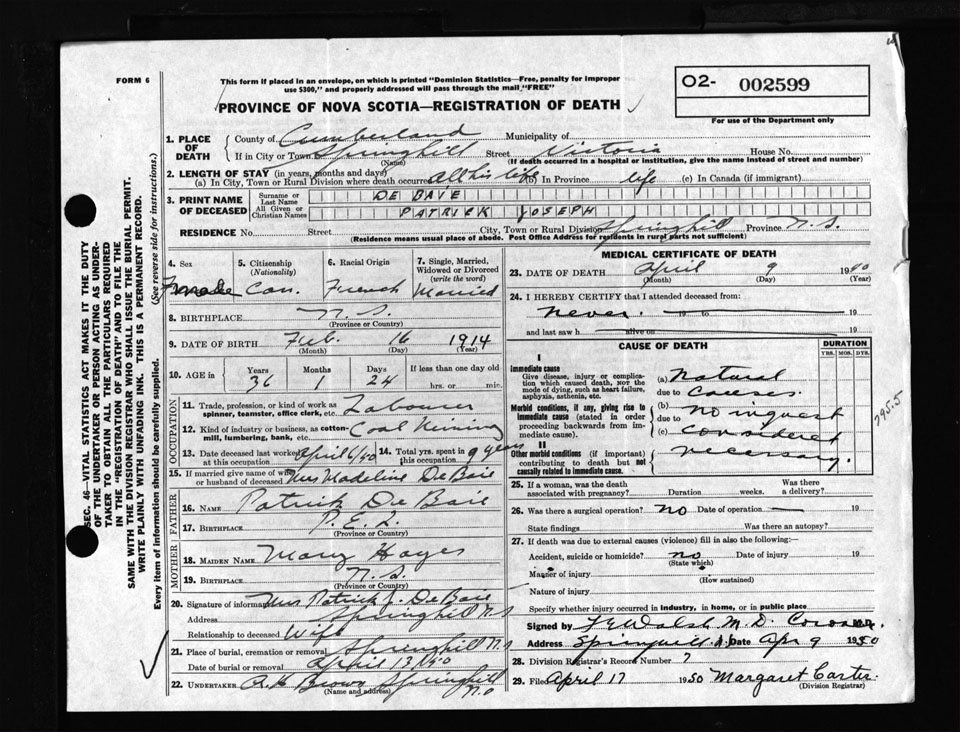 FORM 6
This form if placed in an envelope, on which is printed "Dominion Statistics—Free, penalty for improper
use $300," and properly addressed will pass through the mail "FREE"
PROVINCE OF NOVA SCOTIA—REGISTRATION OF DEATH
O2- 002599
For use of the Department only
1. PLACE OF DEATH
County of Cumberland Municipality of
If in City or Town Springhill Street Victoria House No.
(Name) (If death occurred in a hospital or institution, give the name instead of street and number)
2. LENGTH OF STAY (in years, months and days)
(a) In City, Town or Rural Division where death occurred All his life (b) In Province life (c) In Canada (if immigrant)
3. PRINT NAME OF DECEASED
Surname or Last Name DE BAIE
All Given or Christian Names PATRICK JOSEPH
RESIDENCE No. Street City, Town or Rural Division Springhill Province N.S.
(Residence means usual place of abode. Post Office Address for residents in rural parts not sufficient)
4. Sex male
5. Citizenship (Nationality) Can.
6. Racial Origin French
7. Single, Married, Widowed or Divorced (write the word) Married
8. BIRTHPLACE N.S.
(Province or Country)
9. DATE OF BIRTH Feb. 16 1914
(Month) (Day) (Year)
10. AGE in Years 36 Months 1 Days 24 If less than one day old hrs. or min.
OCCUPATION
11. Trade, profession, or kind of work as spinner, teamster, office clerk, etc. Labourer
12. Kind of industry or business, as cotton-mill, lumbering, bank, etc. Coal Mining
13. Date deceased last worked at this occupation April 6/50
14. Total yrs. spent in this occupation 9 years
15. If married give name of wife or husband of deceased Mrs Madeline De Baie
FATHER
16. NAME Patrick De Baie
17. BIRTHPLACE P.E.I.
(Province or Country)
MOTHER
18. MAIDEN NAME Mary Hayes
19. BIRTHPLACE N.S.
(Province or Country)
20. Signature of informant Mrs Patrick J. De Baie
Address Springhill N.S
Relationship to deceased Wife
21. Place of burial, cremation or removal Springhill N.S
Date of burial or removal April 13/50
22. UNDERTAKER Brown Springhill
(Name and address)
MEDICAL CERTIFICATE OF DEATH
23. DATE OF DEATH April 9 1950
(Month) (Day) (Year)
24. I HEREBY CERTIFY that I attended deceased from:
never. 19 to 19
and last saw h alive on 19
CAUSE OF DEATH
DURATION
YRS. MOS. DYS.
I
Immediate cause
Give disease, injury or complication which caused death, NOT the mode of dying, such as heart failure, asphyxia, asthenia, etc.
(a) Natural
due to causes.
Morbid conditions, if any, giving rise to immediate cause (stated in order proceeding backwards from immediate cause).
(b) no inquest
due to
(c) considered
II
Other morbid conditions (if important) contributing to death but not causally related to immediate cause.
necessary.
795.5
25. If a woman, was the death associated with pregnancy? Duration weeks. Was there a delivery?
26. Was there a surgical operation? no Date of operation — 19
State findings Was there an autopsy?
27. If death was due to external causes (violence) fill in also the following:—
Accident, suicide or homicide? no Date of injury 19
(State which)
Manner of injury
(How sustained)
Nature of injury
Specify whether injury occurred in industry, in home, or in public place
Signed by F E Walsh M.D. Coroner.
Address Springhill Date Apr 9 1950
28. Division Registrar's Record Number 7
29. Filed April 17 1950 Margaret Carter.
(Division Registrar)
SEC. 46—VITAL STATISTICS ACT MAKES IT THE DUTY
OF THE UNDERTAKER OR PERSON ACTING AS UNDER-
TAKER TO OBTAIN ALL THE PARTICULARS REQUIRED
IN THE "REGISTRATION OF DEATH" AND TO FILE THE
SAME WITH THE DIVISION REGISTRAR WHO SHALL ISSUE THE BURIAL PERMIT.
WRITE PLAINLY WITH UNFADING INK. THIS IS A PERMANENT RECORD.
Every item of information should be carefully supplied. (See reverse side for instructions.)